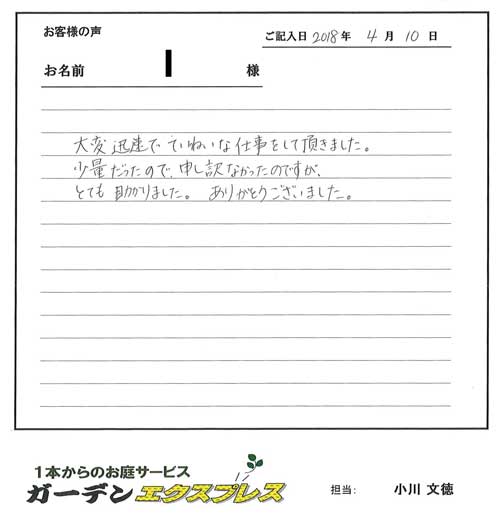 お客様の声
ご記入日 2018年 4月 10日
お名前 様
大変迅速で ていねいな仕事をして頂きました。
少量だったので、申し訳なかったのですが、
とても助かりました。 ありがとうございました。
1本からのお庭サービス
ガーデンエクスプレス
担当: 小川 文徳